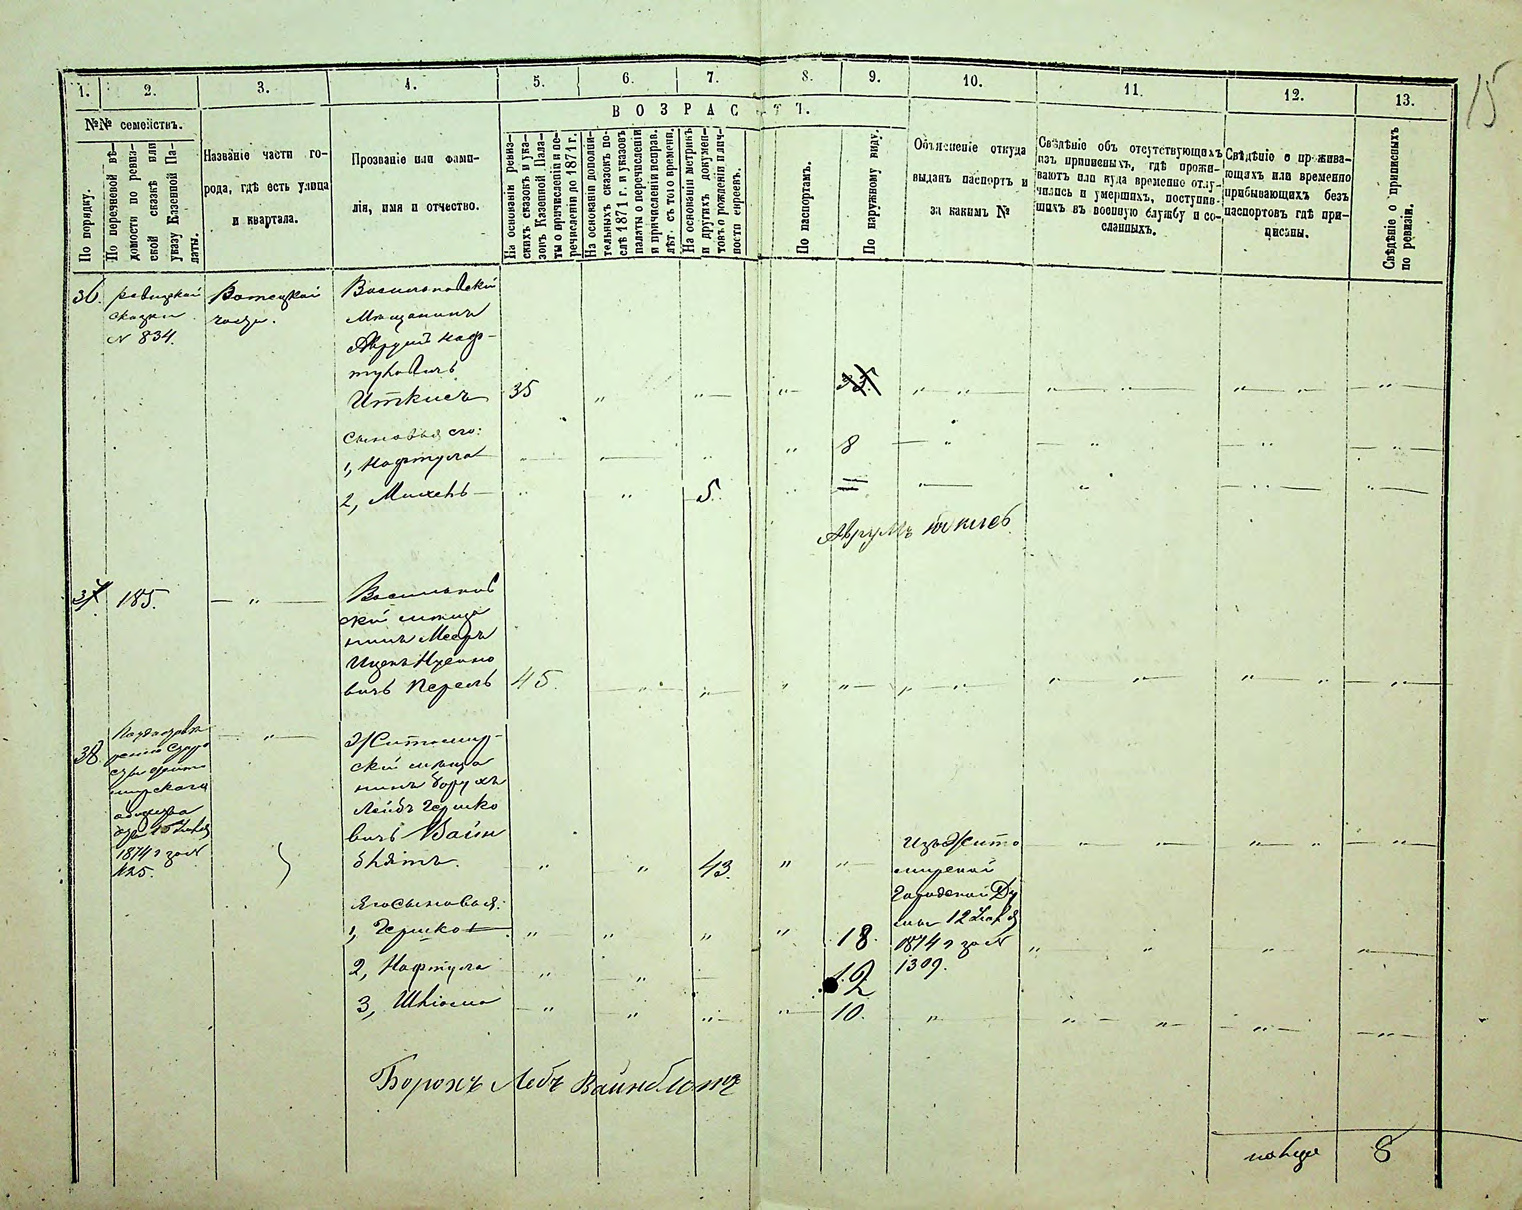 15
1. 2. 3. 4. 5. 6. 7. 8. 9. 10. 11. 12. 13.
№№ семействъ.
По порядку.
По перечневой вѣ-
домости по ревиз-
ской сказкѣ или
указу Казенной Па-
латы.
Названіе части го-
рода, гдѣ есть улица
и квартала.
Прозваніе или фами-
лія, имя и отчество.
ВОЗРАСТЪ.
На основаніи ревиз-
скихъ сказокъ и ука-
зовъ Казенной Пала-
ты о причисленіи и пе-
речисленіи до 1871 г.
На основаніи дополни-
тельныхъ сказокъ по-
слѣ 1871 г. и указовъ
палаты о перечисленіи
и причисленіи исправ.
лѣт. съ того времени.
На основаніи метрикъ
и другихъ докумен-
товъ о рожденіи и лич-
ности евреевъ.
По паспортамъ.
По наружному виду.
Объясненіе откуда
выданъ паспортъ и
за какимъ №
Свѣдѣніе объ отсутствующихъ
изъ приписныхъ, гдѣ прожи-
ваютъ или куда временно отлу-
чились и умершихъ, поступив-
шихъ въ военную службу и со-
сланныхъ.
Свѣдѣніе о прожива-
ющихъ или временно
прибывающихъ безъ
паспортовъ гдѣ при-
писаны.
Свѣдѣніе о приписныхъ
по ревизіи.
36.
сказки
№ 834.
части.
Васильковскій
Мѣщанинъ
Аврумъ Наф-
туловичъ
Иткисъ 35 " " " 35 " " " " " " "
Сыновья его:
1, Нафтула " " " " 8 " " " "
2, Михель " " 5. " " " " "
Аврумъ
37 185. " Васильков
скій мѣща
нинъ Мееръ
Ицекъ
вичъ Перель 45. " " " " " " " " " " "
38. " Житомир-
скій мѣща
нинъ Борухъ
Лейбъ Гершко
вичъ Вайн
блатъ. " " 43. " " " " " " "
1874 г за №
125.
Изъ Жито
мирской
Городской Ду
мы 12
1874 г за №
1309.
Его сыновья:
1, Гершко " " " " 18. " " " "
2, Нафтула " " 12
3, Шліома " " " " 10. " " " " "
Борохъ Лебъ Вайнблотъ
8